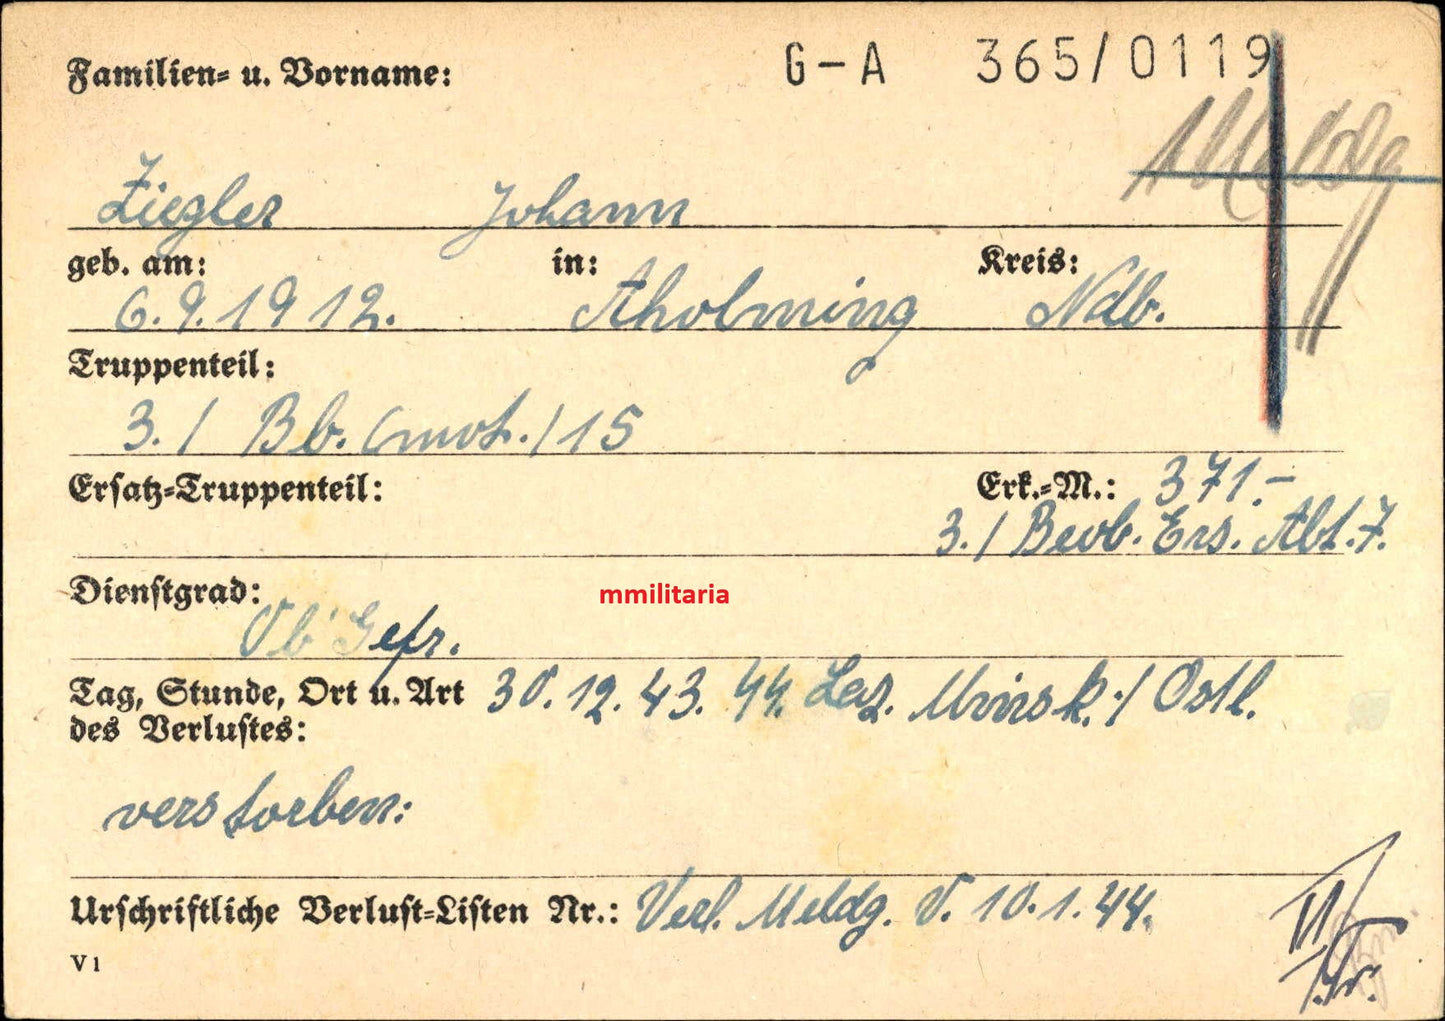 G-A 365/0119
Familien- u. Vorname:
Meldg
Ziegler Johann
geb. am: in: Kreis:
6.9.1912. Aholming Ndb.
Truppenteil:
3./ Bb. (mot./15
Ersatz-Truppenteil: Erk.-M.: 371.-
3./ Beob. Ers. Abt. 7.
Dienstgrad:
mmilitaria
Ob'Gefr.
Tag, Stunde, Ort u. Art 30.12.43. 44. Laz. Minsk./ Ostl.
des Verlustes:
verstorben:
Urschriftliche Verlust-Listen Nr.: Verl. Meldg. v. 10.1.44.
V 1